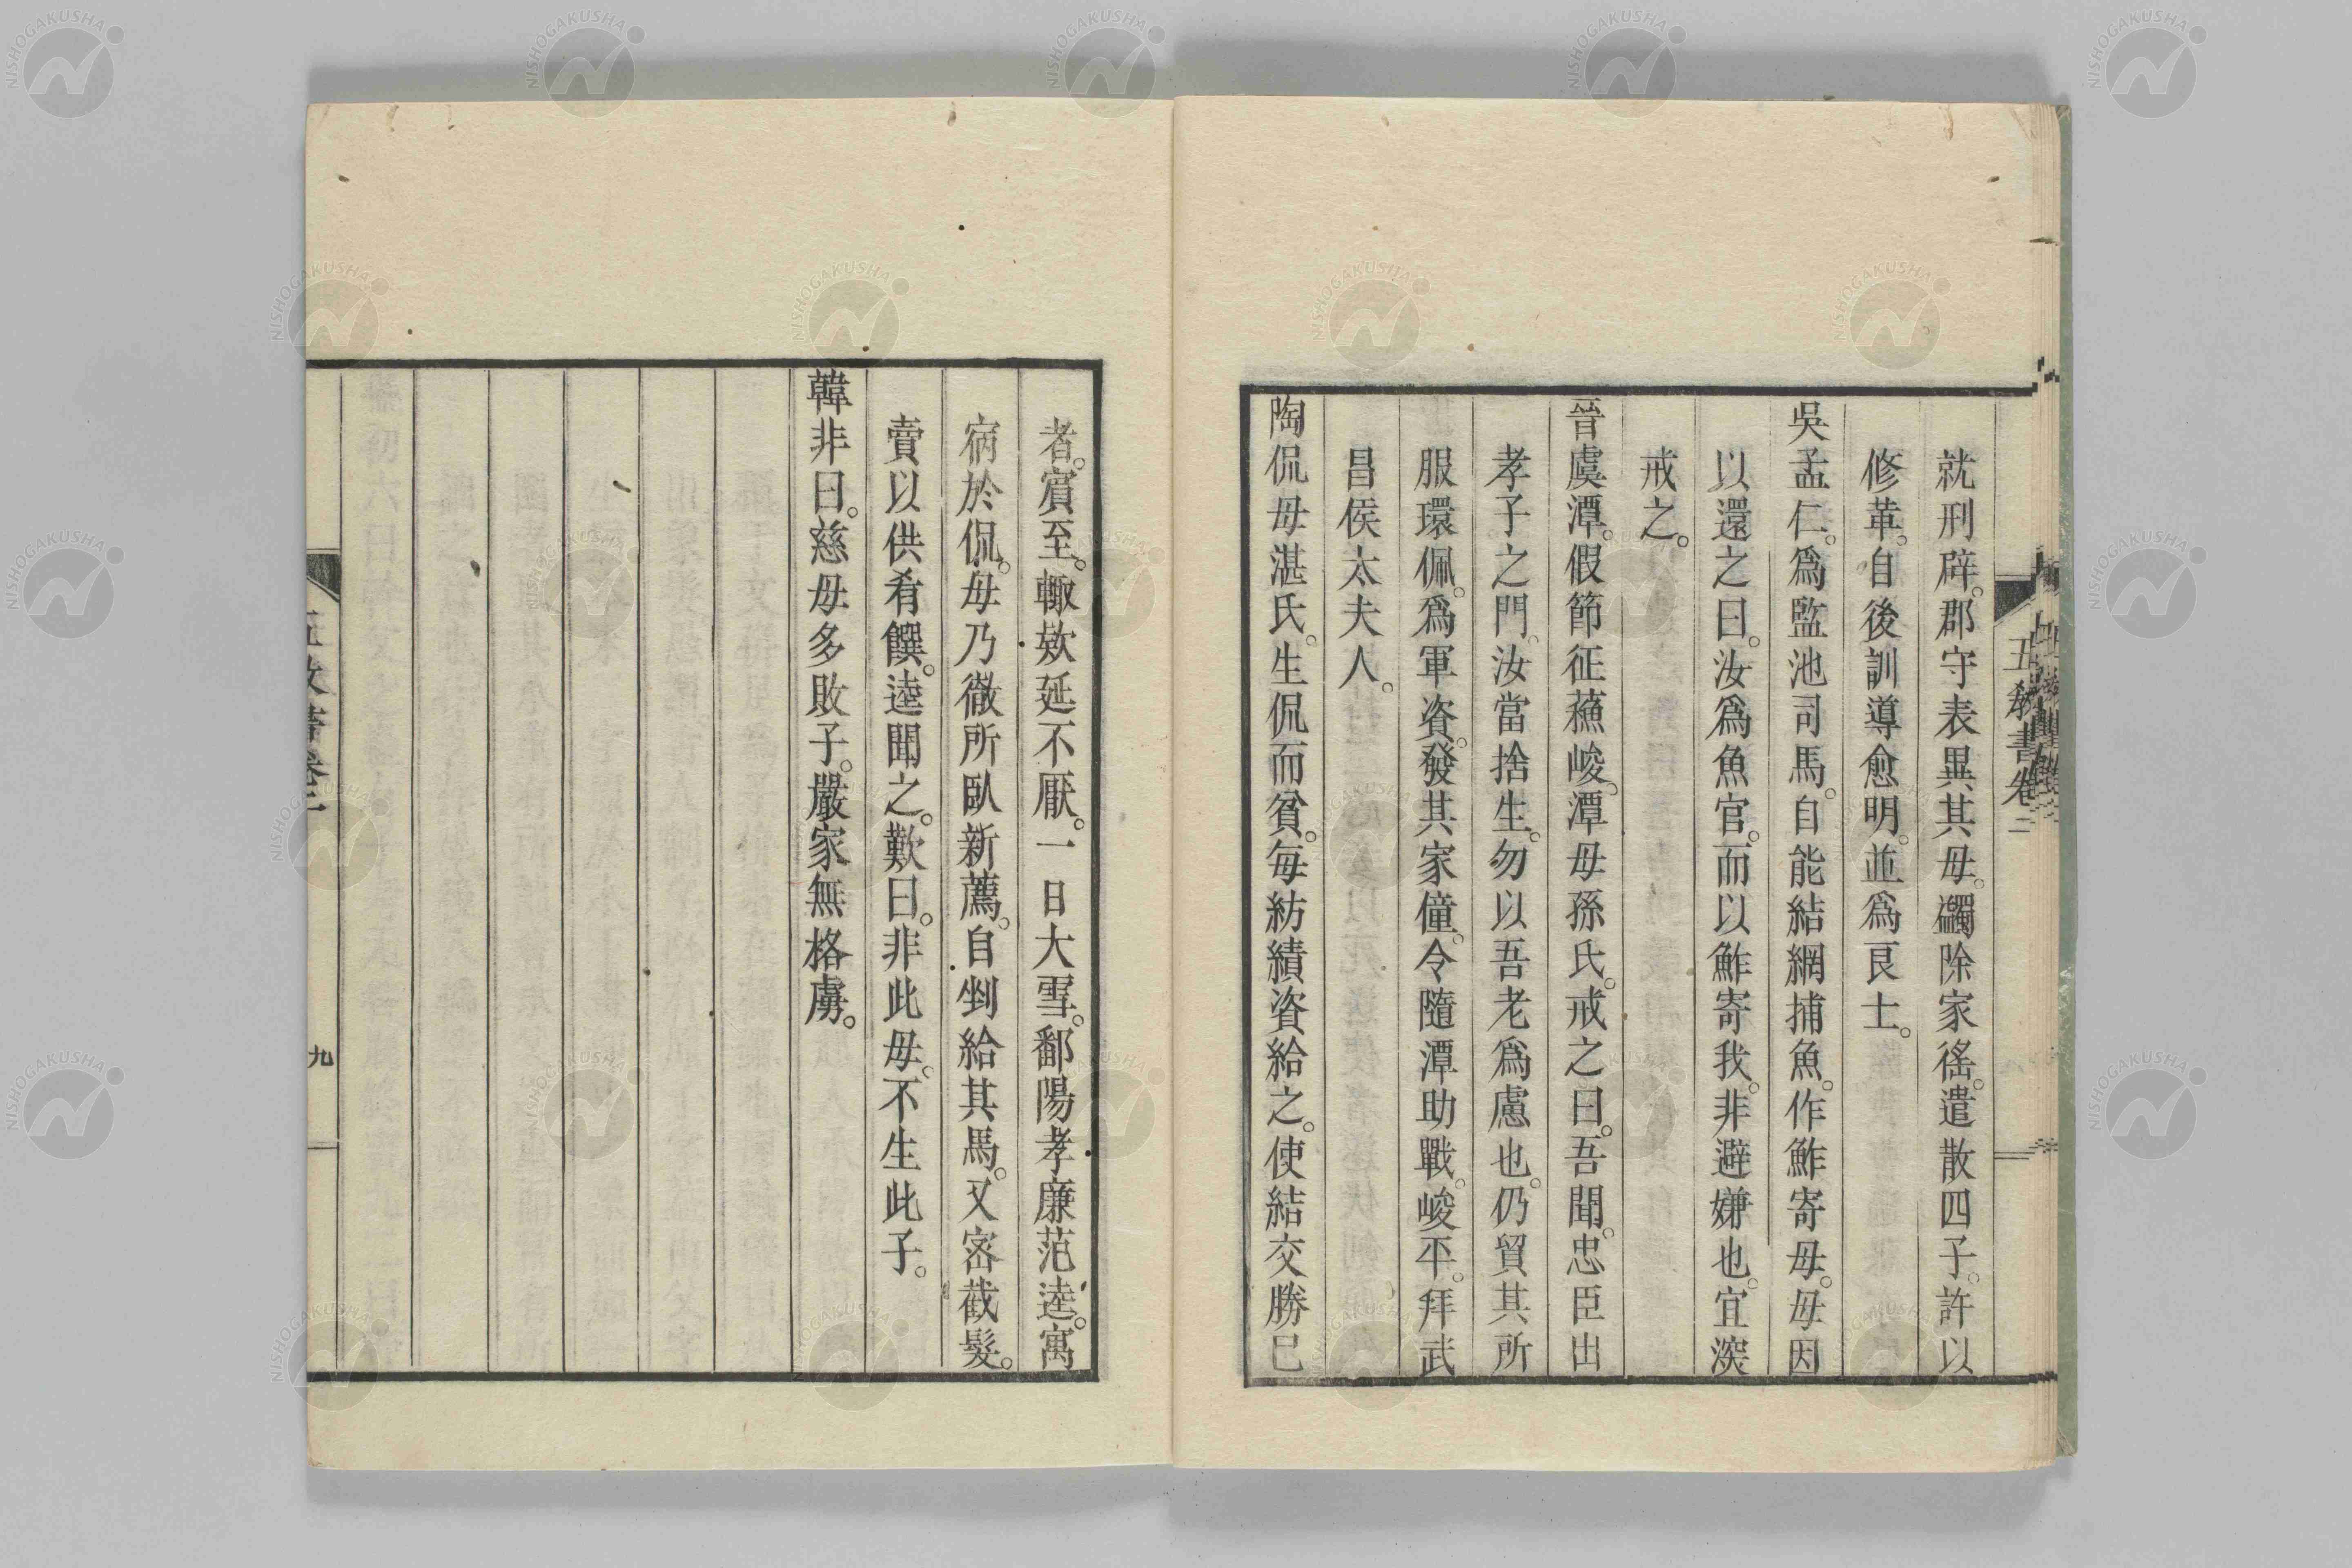 五教書卷二
就刑辟。郡守表異其母。蠲除家徭。遣散四子。許以
修革。自後訓導愈明。並爲良士。
吳孟仁。爲監池司馬。自能結網捕魚。作鮓寄母。母因
以還之曰。汝爲魚官。而以鮓寄我。非避嫌也。宜深
戒之。
晉虞潭。假節征蘓峻。潭母孫氏。戒之曰。吾聞。忠臣出
孝子之門。汝當捨生。勿以吾老爲慮也。仍貿其所
服環佩。爲軍資。發其家僮。令隨潭助戰。峻平。拜武
昌侯太夫人。
陶侃母湛氏。生侃而貧。每紡績資給之。使結交勝己
者。賓至。輙欵延不厭。一日大雪。鄱陽孝廉范逵。寓
宿於侃。母乃徹所臥新薦。自剉給其馬。又密截髮。
賣以供肴饌。逵聞之。歎曰。非此母。不生此子。
韓非曰。慈母多敗子。嚴家無格虜。
五教書卷二
九
NISHOGAKUSHA